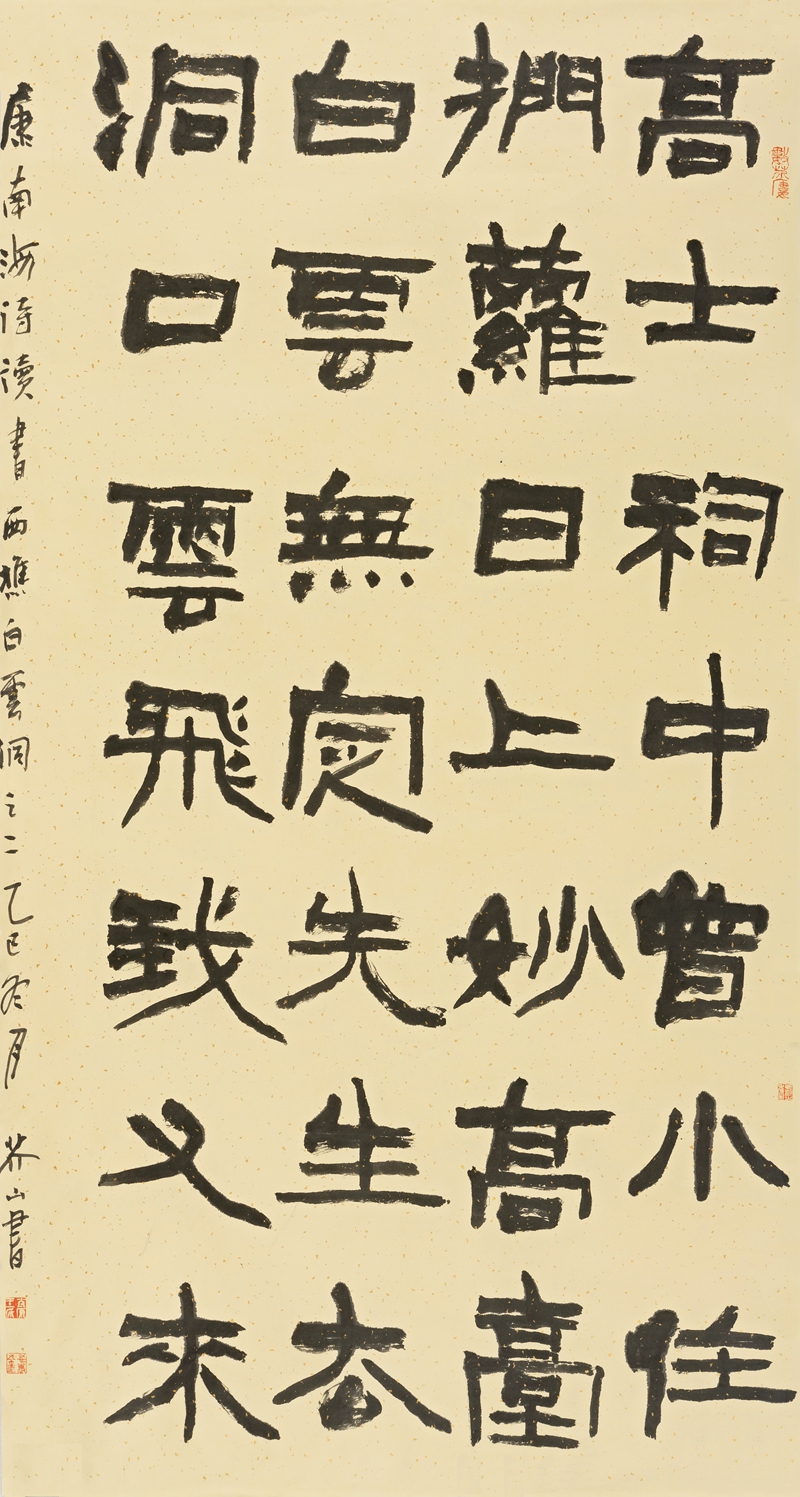 高士祠中曾小住
捫蘿日上妙高臺
白雲無定先生去
洞口雲飛我又來
康南海詩讀書西樵白雲洞之二乙巳冬月 芥山書